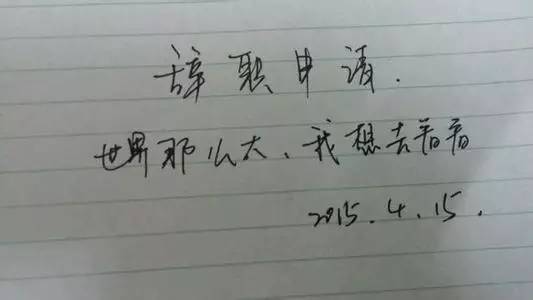 辞职申请.
世界那么大、我想去看看
2015.4.15.